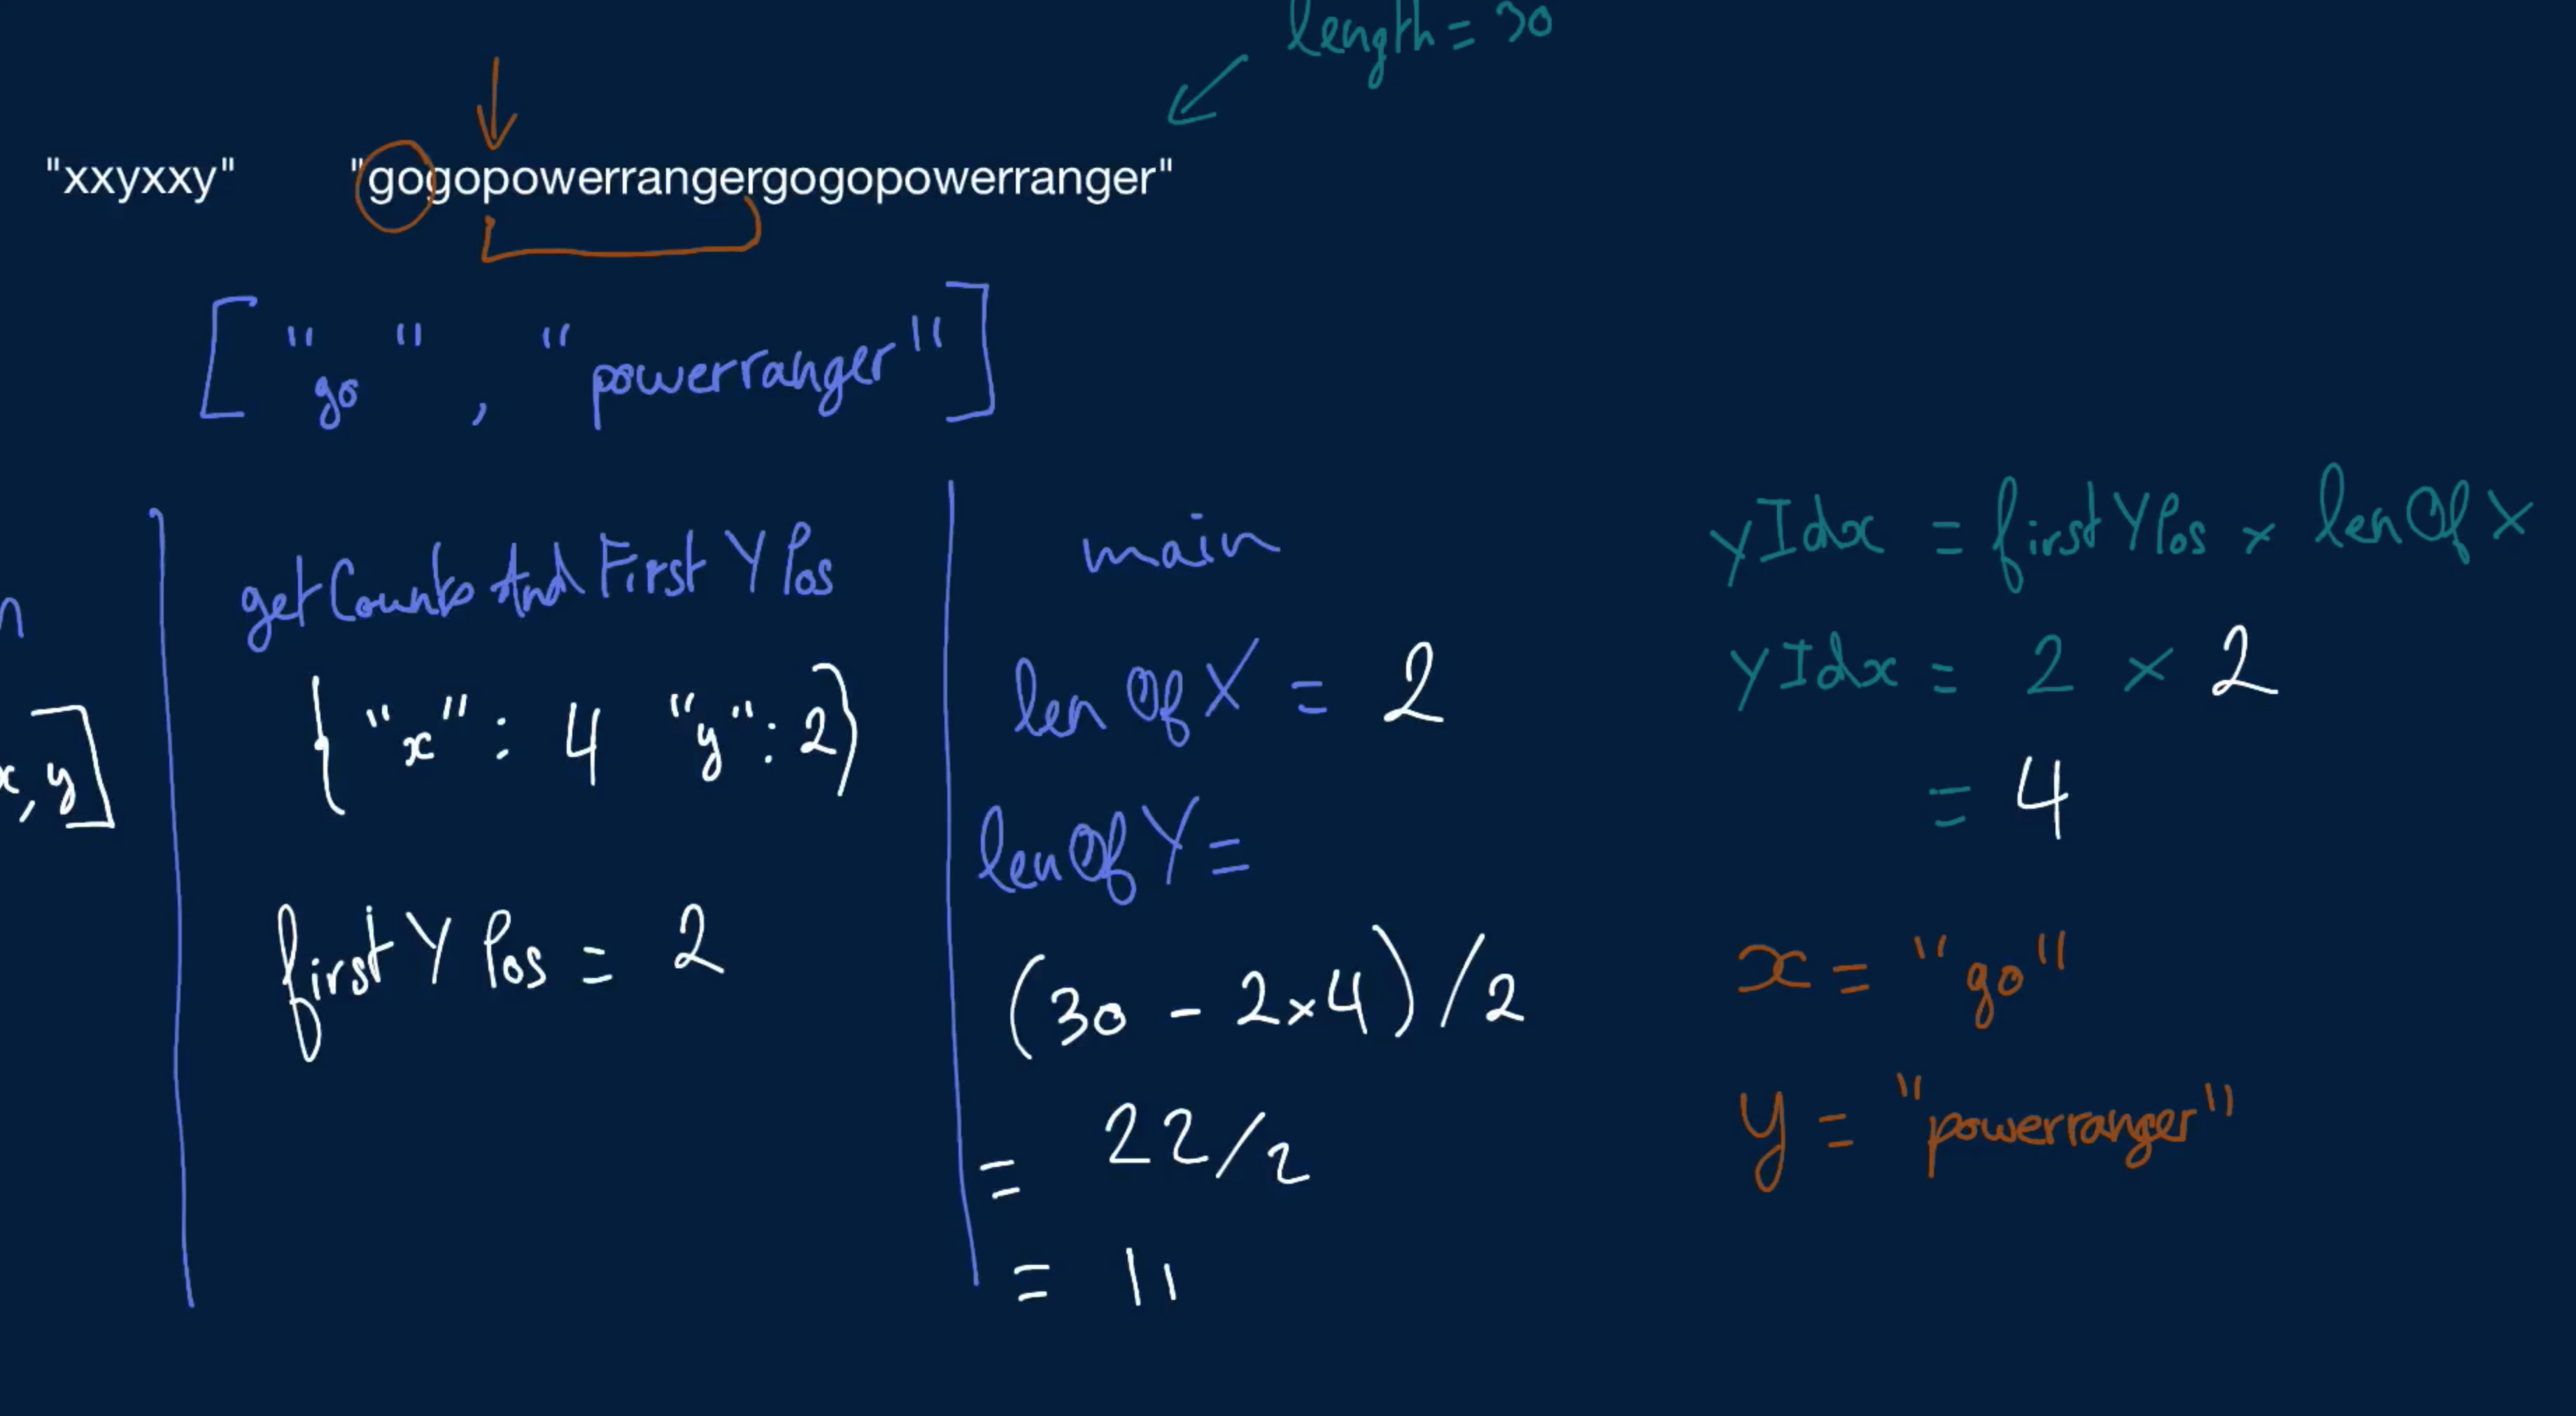 length = 30
"xxyxxy" "gogopowerrangergogopowerranger"
["go", "powerranger"]
n
x, y]
getCountsAndFirstYPos
{"x": 4 "y": 2}
firstYPos = 2
main
lenOfX = 2
lenOfY =
(30 - 2x4)/2
= 22/2
= 11
yIdx = firstYPos x lenOfX
yIdx = 2 x 2
= 4
x = "go"
y = "powerranger"